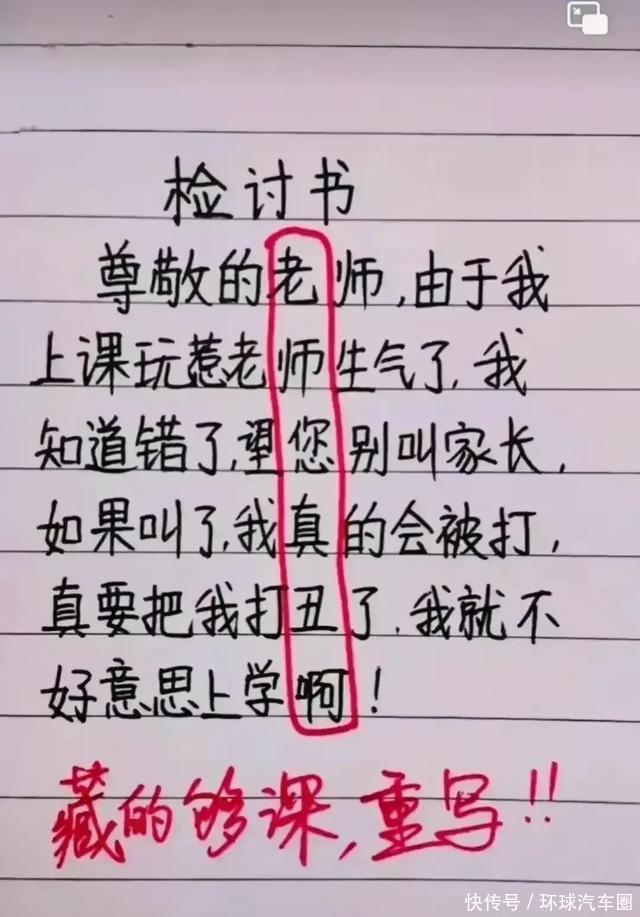 检讨书
尊敬的老师,由于我
上课玩惹老师生气了,我
知道错了,望您别叫家长,
如果叫了,我真的会被打,
真要把我打丑了,我就不
好意思上学啊!
藏的够深,重写!!
快传号/环球汽车圈